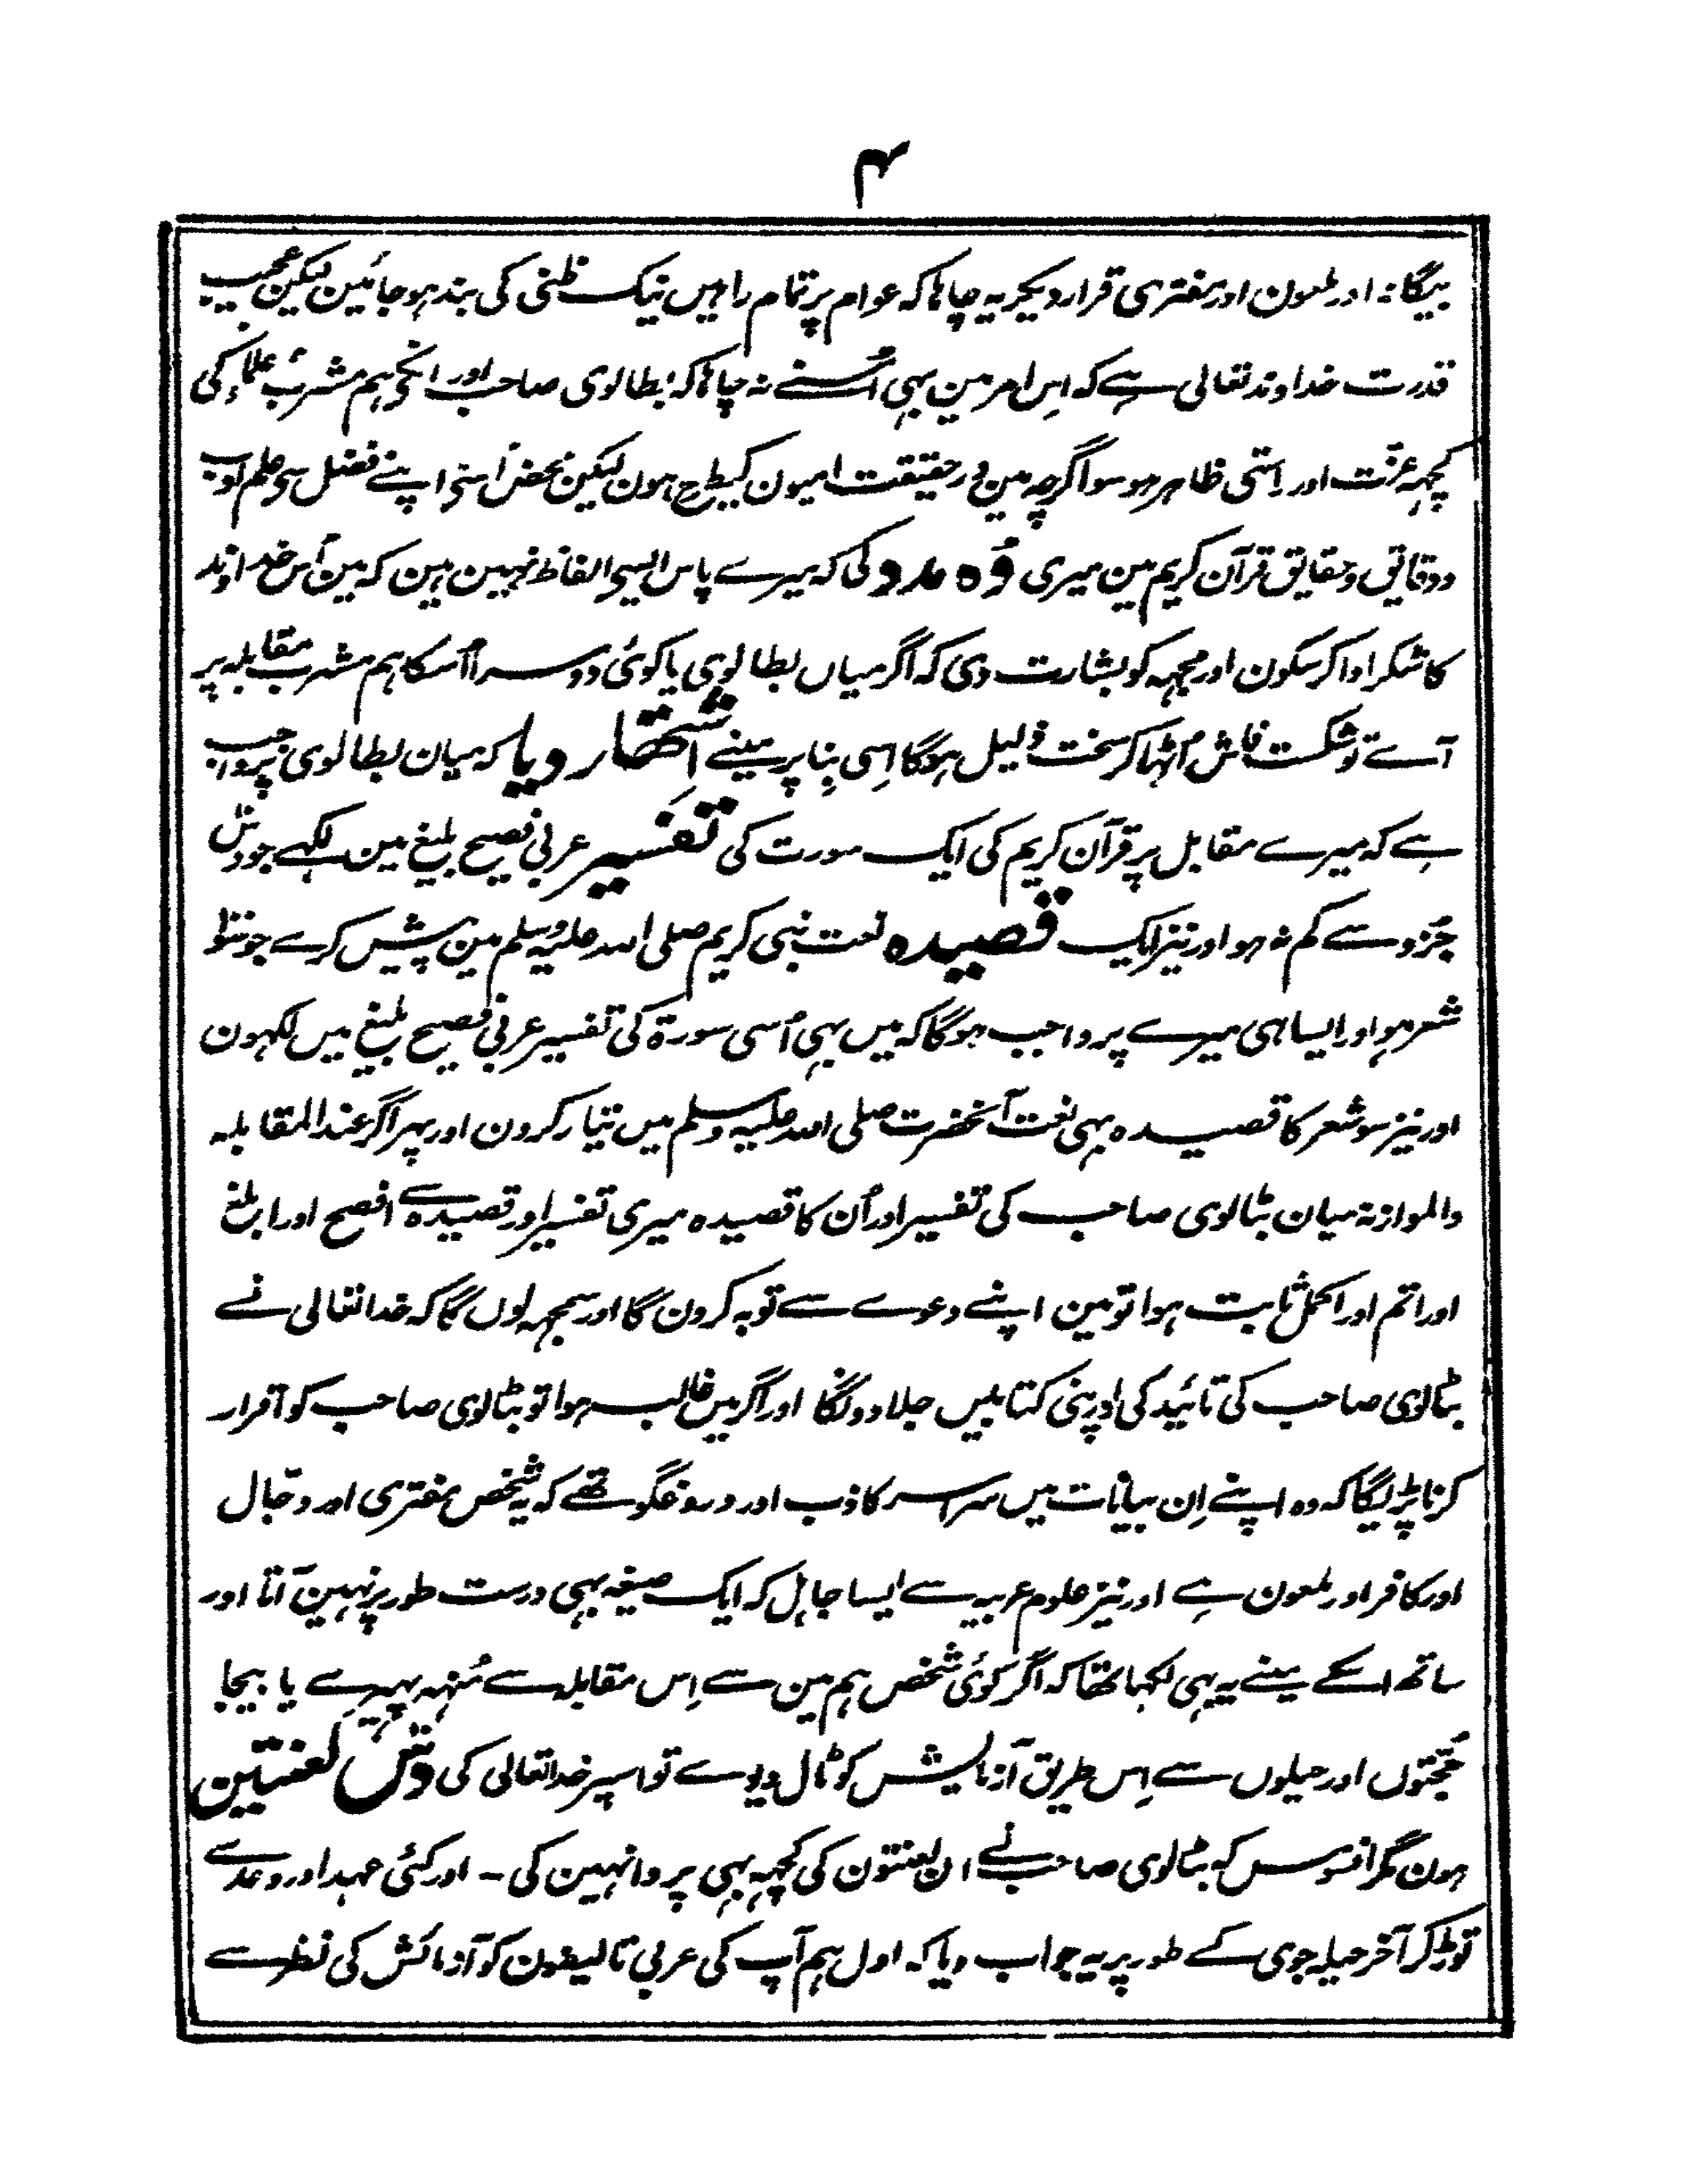 ۴
بیگانہ اور ملعون اور مفتری قرار دیکر یہ چاہا کہ عوام پر تمام راہیں نیک ظنی کی بند ہو جائین لیکن عجیب
قدرت خداوند تعالی ہے کہ اِس امر مین بہی اُسنے نہ چاہا کہ بطالوی صاحب اور انکے ہم مشرب علماء کی
کچہہ عزّت اور راستی ظاہر ہو سو اگرچہ مین در حقیقت امیون کیطرح ہون لیکن محض اُسنے اپنے فضل سے علم ادب
و دقایق و حقایق قرآن کریم مین میری وُہ مدد کی کہ میرے پاس ایسے الفاظ نہین ہین کہ مین اُس خداوند
کا شکر ادا کر سکون اور مجہہ کو بشارت دی کہ اگر میاں بطالوی یا کوئی دوسرا اُسکا ہم مشرب مقابلہ پر
آئے تو شکست فاش اُٹہا کر سخت ذلیل ہوگا اِسی بِنا پر مینے اِشتھار دیا کہ میان بطالوی پر واجب
ہے کہ میرے مقابل پر قرآن کریم کی ایک سورت کی تفسیر عربی فصیح بلیغ مین لکہے جو دس
جُزو سے کم نہ ہو اور نیز ایک قصیدہ نعت نبی کریم صلی اللہ علیہ وسلم مین پیش کرے جو سَو
شعر ہو اور ایسا ہی میرے پر واجب ہوگا کہ میں بہی اُسی سورۃ کی تفسیر عربی فصیح بلیغ میں لکہون
اور نیز سو شعر کا قصیدہ بہی نعت آنحضرت صلی اللہ علیہ وسلم میں تیار کرون اور پہر اگر عند المقابلہ
والموازنہ میان بٹالوی صاحب کی تفسیر اور اُن کا قصیدہ میری تفسیر اور قصیدہ سے افصح اور ابلغ
اور اتم اور اکمل ثابت ہوا تو مین اپنے دعوے سے توبہ کرون گا اور سمجہہ لوں گا کہ خدا تعالی نے
بٹالوی صاحب کی تائید کی اور اپنی کتابیں جلا دونگا اور اگر میں غالب ہوا تو بٹالوی صاحب کو اقرار
کرنا پڑیگا کہ وہ اپنے اِن بیانات میں سراسر کاذب اور دروغگو تھے کہ یہ شخص مفتری اور دجّال
اور کافر اور ملعون ہے اور نیز علوم عربیہ سے ایسا جاہل کہ ایک صیغہ بہی درست طور پر نہین آتا اور
ساتھ اسکے مینے یہ بہی لکہا تھا کہ اگر کوئی شخص ہم مین سے اِس مقابلہ سے مُنہہ پہیرے یا بیجا
حُجّتوں اور حیلوں سے اِس طریق آزمایش کو ٹال دیوے تو اسپر خدا تعالی کی دسّ لعنتین
ہون مگر افسوس کہ بٹالوی صاحب نے ان لعنتون کی کچہہ بہی پروا نہین کی ۔ اور کئی عہد اور وعدے
توڑ کر آخر حیلہ جوی کے طور پر یہ جواب دیا کہ اول ہم آپ کی عربی تالیفون کو آزمائش کی نظر سے